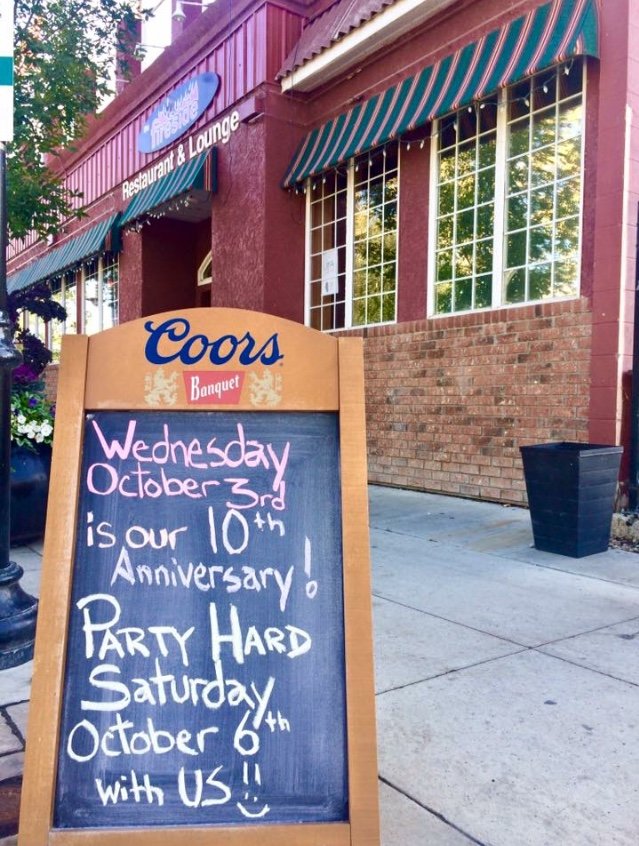 fireside
Restaurant & Lounge
Coors
Banquet
Wednesday
October 3rd
is our 10th
Anniversary!
PARTY HARD
Saturday
October 6th
with US!!